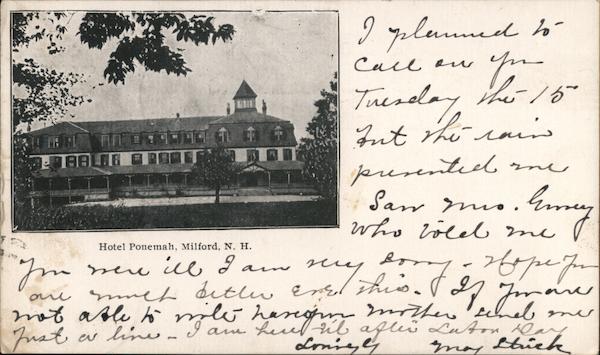 I planned to
call on you
Tuesday the 15
but the rain
prevented me
Saw Mrs.
who told me
Hotel Ponemah, Milford, N. H.
you were ill I am very sorry - Hope you
are much better ere this. If you are
not able to write have your mother send me
just a line - I am here til after Labor Day
Lovingly May